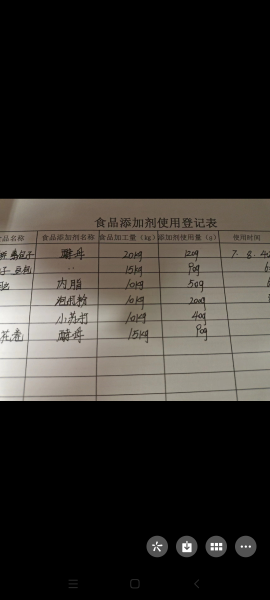 食品添加剂使用登记表
品名称 食品添加剂名称 食品加工量（kg） 添加剂使用量（g） 使用时间
包子 酵母 20kg 120g 7.8.40
子 豆包 〃 15kg 90g 6
内脂 10kg 50g
泡打粉 10kg 200g
小苏打 10kg 40g
花卷 酵母 15kg 90g